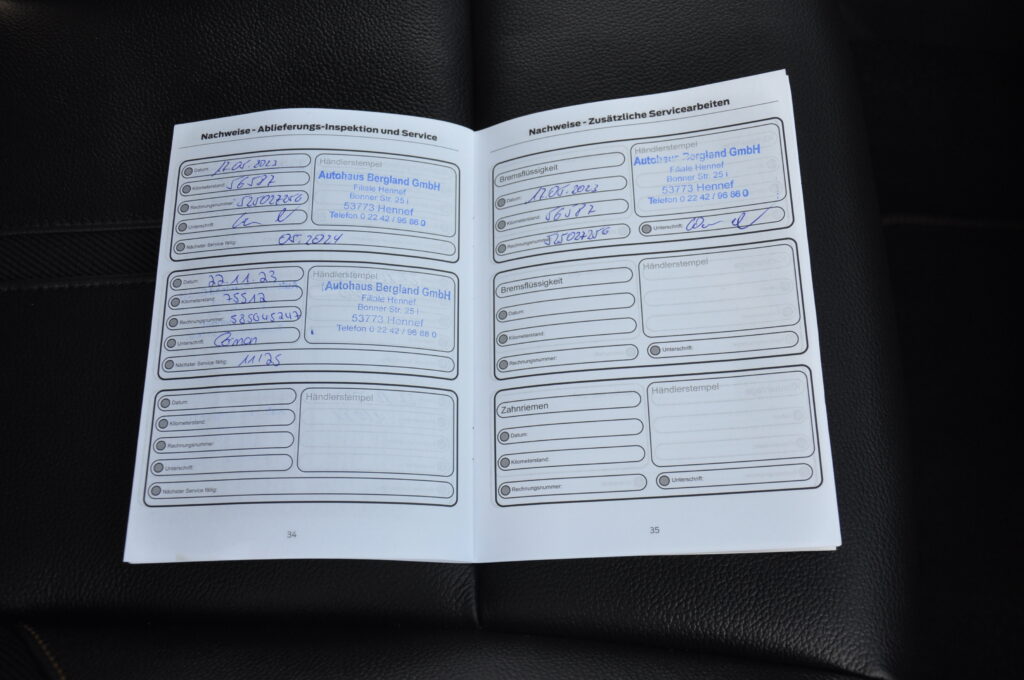 Nachweise - Ablieferungs-Inspektion und Service
Datum: 17.05.2023
Kilometerstand: 56587
Rechnungsnummer: 525027256
Unterschrift:
Nächster Service fällig: 05.2024
Händlerstempel
Autohaus Bergland GmbH
Filiale Hennef
Bonner Str. 25 i
53773 Hennef
Telefon 0 22 42 / 96 88 0
Datum: 22.11.23
Kilometerstand: 75512
Rechnungsnummer: 585045247
Unterschrift:
Nächster Service fällig: 11/25
Händlerstempel
Autohaus Bergland GmbH
Filiale Hennef
Bonner Str. 25 i
53773 Hennef
Telefon 0 22 42 / 96 88 0
Datum:
Kilometerstand:
Rechnungsnummer:
Unterschrift:
Nächster Service fällig:
Händlerstempel
34
Nachweise - Zusätzliche Servicearbeiten
Bremsflüssigkeit
Datum: 17.05.2023
Kilometerstand: 56587
Rechnungsnummer: 525027256
Händlerstempel
Autohaus Bergland GmbH
Filiale Hennef
Bonner Str. 25 i
53773 Hennef
Telefon 0 22 42 / 96 88 0
Unterschrift:
Bremsflüssigkeit
Datum:
Kilometerstand:
Rechnungsnummer:
Händlerstempel
Unterschrift:
Zahnriemen
Datum:
Kilometerstand:
Rechnungsnummer:
Händlerstempel
Unterschrift:
35